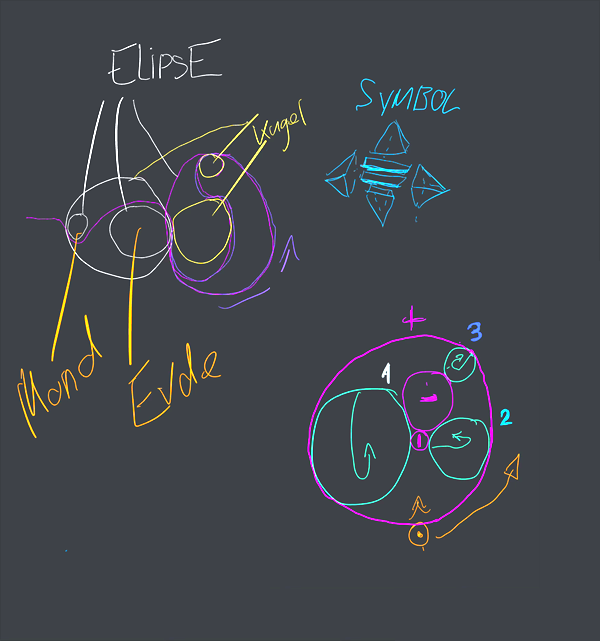 ELIPSE
SYMBOL
Kugel
Mond
Erde
+
3
1
-
2